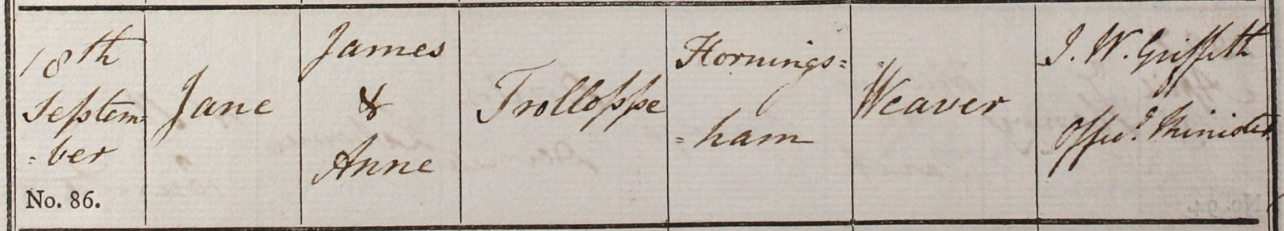 18th
Septem-
-ber
No. 86.
Jane
James
&
Anne
Trolloppe
Hornings=
=ham
Weaver
J. W. Griffith
Offic.g Minister